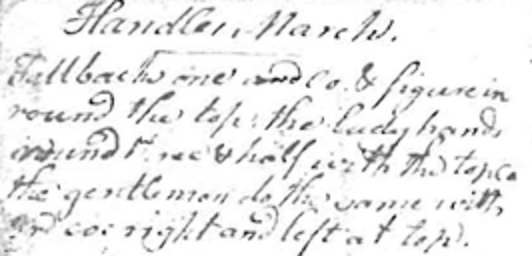 Handles March.
Fall back one and co. & figure in
round the top; the lady hands
round 1st & half with the top co
the gentleman do the same with
3rd co: right and left at top.